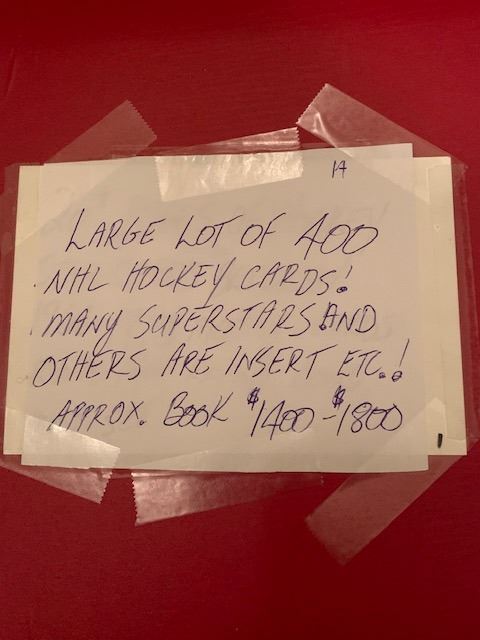 14
LARGE LOT OF 400
NHL HOCKEY CARDS!
MANY SUPERSTARS AND
OTHERS ARE INSERT ETC.!
APPROX. BOOK $1400-$1800